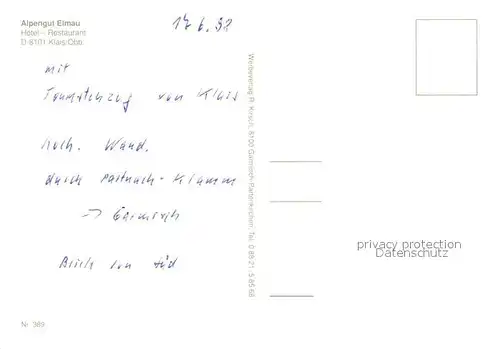 Alpengut Elmau
Hotel - Restaurant
D 8101 Klais/Obb.
17.6.92
mit
von Klais
Wand.
durch Partnach-Klamm
-> Garmisch
Blick von Süd
Werbeverlag R. Kirsch, 8100 Garmisch-Partenkirchen, Tel. 0 88 21 - 5 85 68
privacy protection
Datenschutz
Nr. 389